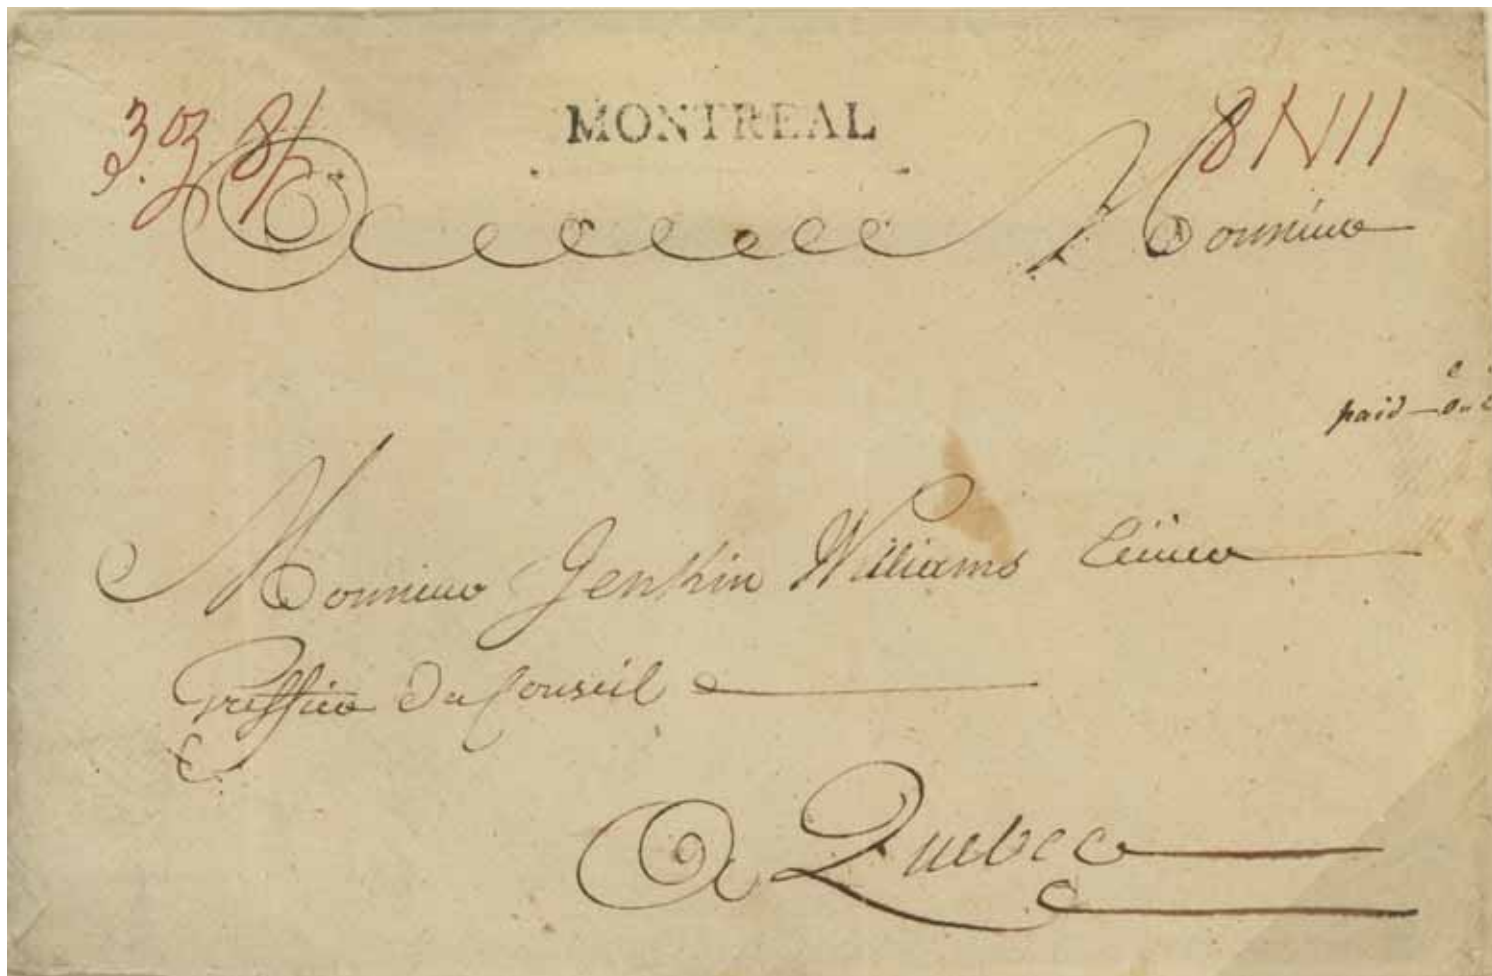 MONTREAL
3 oz 8/
8 N 11
A Monsieur
paid
Monsieur Jenkin Williams Ecuier
Greffier du Conseil
A Quebec